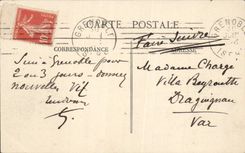 CARTE POSTALE
GRENOBLE
GRENOBLE
ISÈRE
CORRESPONDANCE
Faire Suivre
Suis à Grenoble pour
2 ou 3 jours - donner
nouvelles Vif
Madame Charge
Villa Beyrouth
Draguignan
Var
10